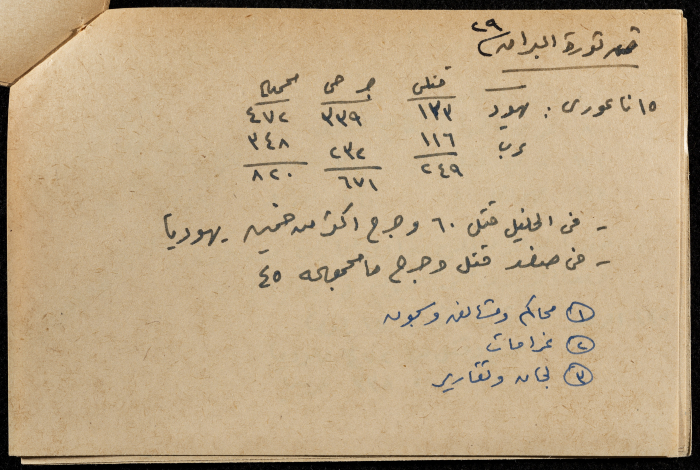 ٢٩
قصة ثورة البراق
قتلى جرحى مجموع
١٥ ناعورى : يهود ١٣٣ ٣٣٩ ٤٧٢
عرب ١١٦ ٢٣٢ ٣٤٨
٢٤٩ ٦٧١ ٨٢٠
- فى الخليل قتل ٦٠ وجرح اكثر من خمسين يهوديا
- فى صفد قتل وجرح ما مجموعه ٤٥
① محاكم ومشانق وسجون
② غرامات
③ لجان وتقارير